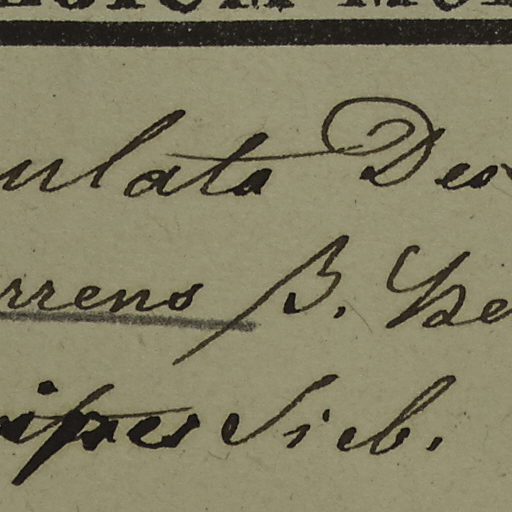 ulata Des
rrens β. He
ipes Sieb.